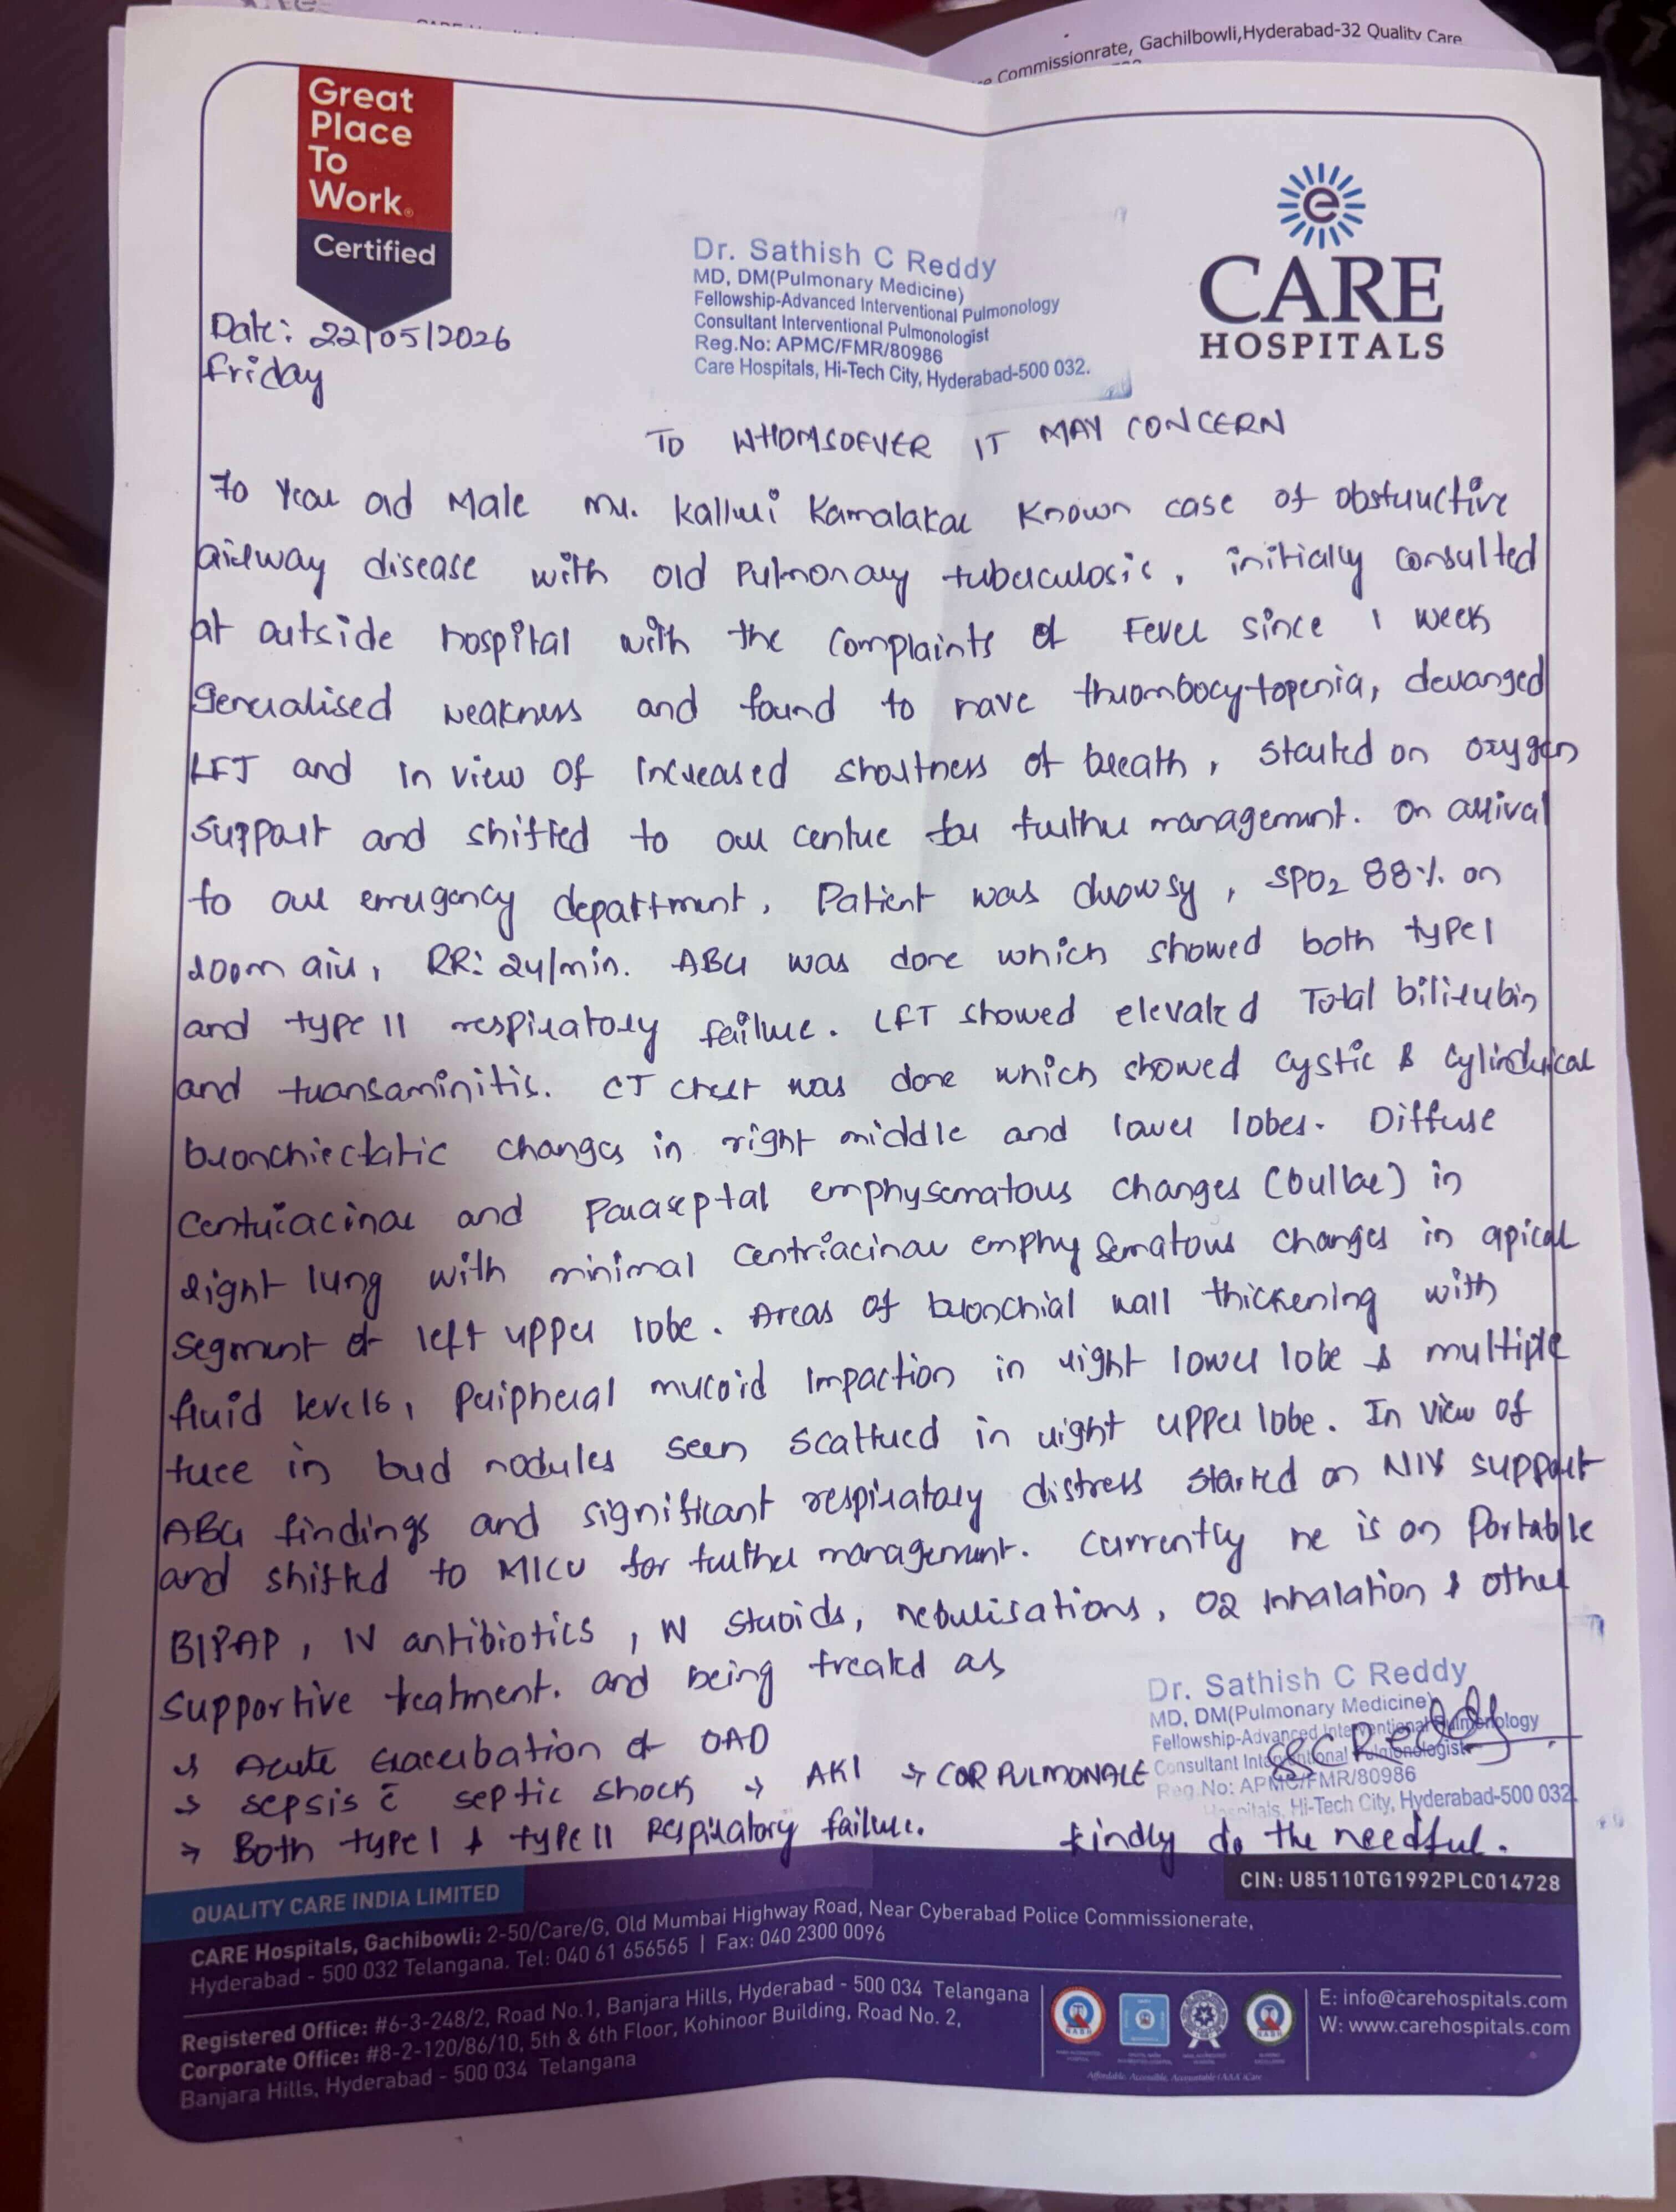 Commissionrate, Gachilbowli,Hyderabad-32 Quality Care
Great
Place
To
Work.
Certified
Dr. Sathish C Reddy
MD, DM(Pulmonary Medicine)
Fellowship-Advanced Interventional Pulmonology
Consultant Interventional Pulmonologist
Reg.No: APMC/FMR/80986
Care Hospitals, Hi-Tech City, Hyderabad-500 032.
CARE
HOSPITALS
Date: 22/05/2026
Friday
TO WHOMSOEVER IT MAY CONCERN
70 Year old Male Mr. Kalluri Kamalakar Known case of obstructive
airway disease with old Pulmonary tuberculosis, initially consulted
at outside hospital with the complaints of Fever since 1 week
Generalised weakness and found to have thrombocytopenia, deranged
LFT and in view of increased shortness of breath, started on oxygen
support and shifted to our centre for further management. On arrival
to our emergency department, Patient was drowsy, SPO2 88% on
room air, RR: 24/min. ABG was done which showed both type I
and type II respiratory failure. LFT showed elevated Total bilirubin
and transaminitis. CT chest was done which showed cystic & cylindrical
bronchiectatic changes in right middle and lower lobes. Diffuse
centriacinar and Paraseptal emphysematous changes (bullae) in
right lung with minimal centriacinar emphysematous changes in apical
segment of left upper lobe. Areas of bronchial wall thickening with
fluid levels, Peripheral mucoid impaction in right lower lobe & multiple
tree in bud nodules seen scattered in right upper lobe. In view of
ABG findings and significant respiratory distress started on NIV support
and shifted to MICU for further management. Currently he is on Portable
BIPAP, IV antibiotics, IV steroids, nebulisations, O2 inhalation & other
supportive treatment. and being treated as
→ Acute Exacerbation of OAD
→ sepsis c̄ septic shock → AKI → COR PULMONALE
→ Both type I & type II Respiratory failure.
Dr. Sathish C Reddy
MD, DM(Pulmonary Medicine)
Fellowship-Advanced Interventional Pulmonology
Consultant Interventional Pulmonologist
Reg.No: APMC/FMR/80986
Hospitals, Hi-Tech City, Hyderabad-500 032.
SSC Reddy
kindly do the needful.
CIN: U85110TG1992PLC014728
QUALITY CARE INDIA LIMITED
CARE Hospitals, Gachibowli: 2-50/Care/G, Old Mumbai Highway Road, Near Cyberabad Police Commissionerate,
Hyderabad - 500 032 Telangana. Tel: 040 61 656565 | Fax: 040 2300 0096
Registered Office: #6-3-248/2, Road No.1, Banjara Hills, Hyderabad - 500 034 Telangana
Corporate Office: #8-2-120/86/10, 5th & 6th Floor, Kohinoor Building, Road No. 2,
Banjara Hills, Hyderabad - 500 034 Telangana
E: info@carehospitals.com
W: www.carehospitals.com